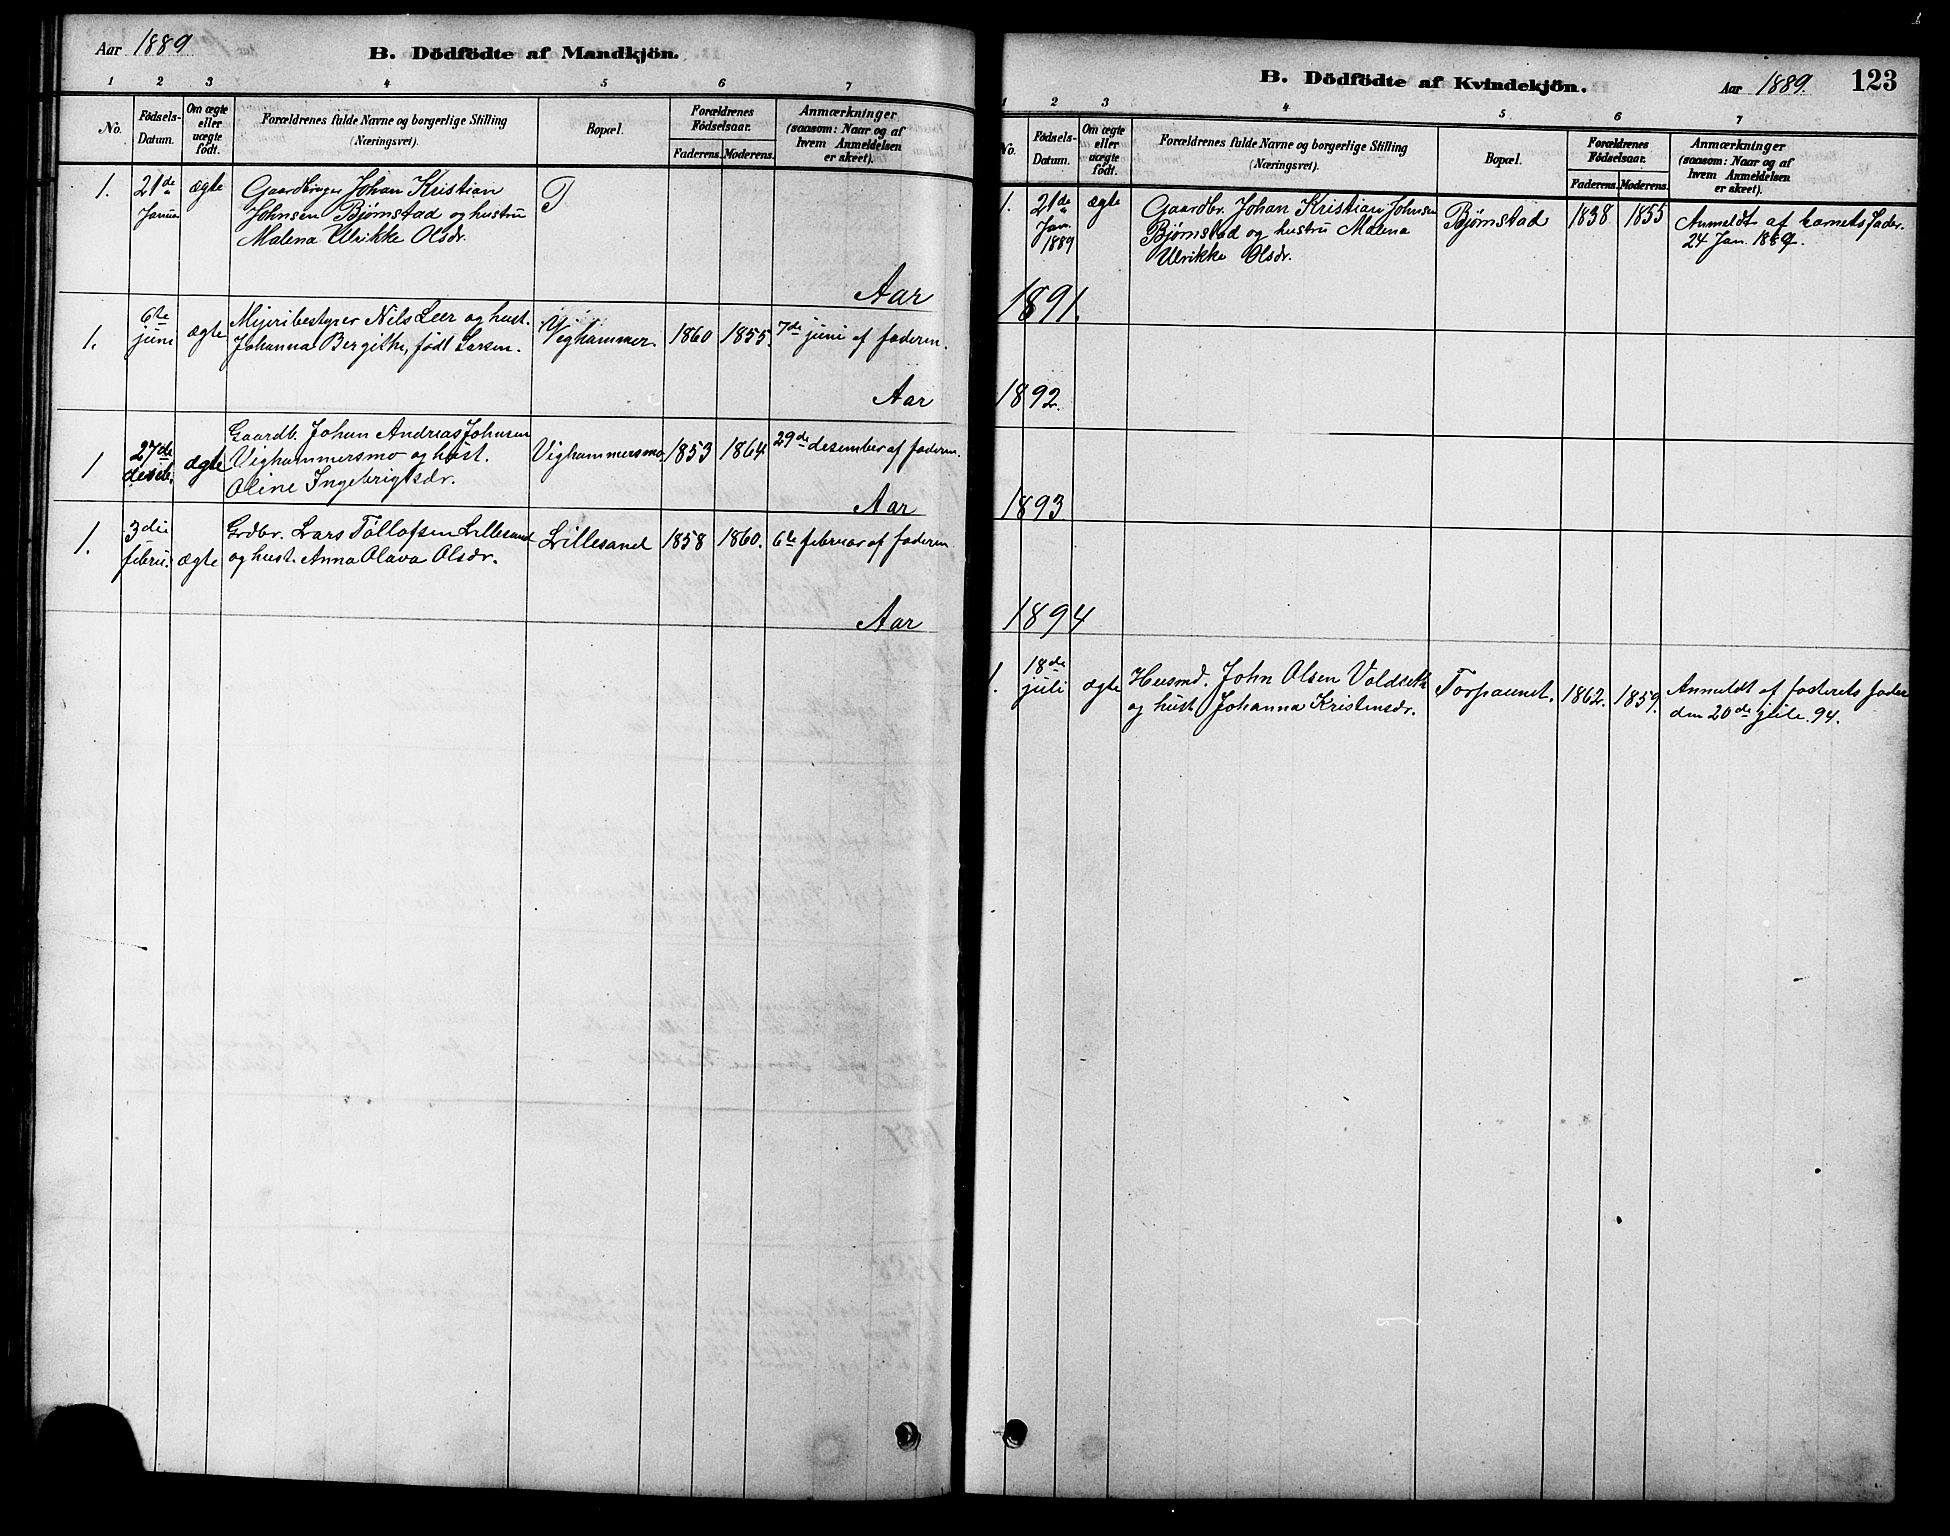 Aar 1889
B. Dödfödte af Mandkjön.
1 2 3 4 5 6 7
No.
Födsels-
Datum.
Om ægte
eller
uægte
födt.
Forældrenes fulde Navne og borgerlige Stilling
(Næringsvei).
Bopæl.
Forældrenes
Födselsaar.
Faderens. Moderens.
Anmærkninger
(saasom: Naar og af
hvem Anmeldelsen
er skeet).
1. 21de ægte Gaardbruger Johan Kristian
Januar Johnsen Bjørnstad og hustru
Malena Ulrikke Olsdr.
Aar
1. 6te juni ægte Mejeribestyrer Nils Leer og hust. Veghammer. 1860 1855. 7de juni af faderen.
Johanna Bergithe, født Larsen.
Aar
1 27de ægte Gaardb. Johan Andreas Johnsen
Vighammersmo og hust. Vighammersmo 1853 1864 29de desember af faderen.
Oline Ingebrigtsdr.
Aar
1. 3die februr. ægte Grdbr. Lars Tollofsen Lillesand Lillesand 1858 1860. 6te februar af faderen.
og hust. Anna Olava Olsdr.
Aar
B. Dödfödte af Kvindekjön.
Aar 1889. 123
1 2 3 4 5 6 7
No.
Födsels-
Datum.
Om ægte
eller
uægte
födt.
Forældrenes fulde Navne og borgerlige Stilling
(Næringsvei).
Bopæl.
Forældrenes
Födselsaar.
Faderens. Moderens.
Anmærkninger
(saasom: Naar og af
hvem Anmeldelsen
er skeet).
1. 21de ægte Gaardbr. Johan Kristian Johnsen Bjørnstad 1838 1855 Anmeldt af barnets fader
Jan. Bjørnstad og hustru Malena 24 Jan. 1889.
1889 Ulrikke Olsdr.
1891.
1892.
1893
1894
1. 18de juli ægte Husmd. John Olsen Voldseth Torpaunet. 1862. 1859. Anmeldt af faderets fader
og hust Johanna Kristensdr. den 20de juli 94.